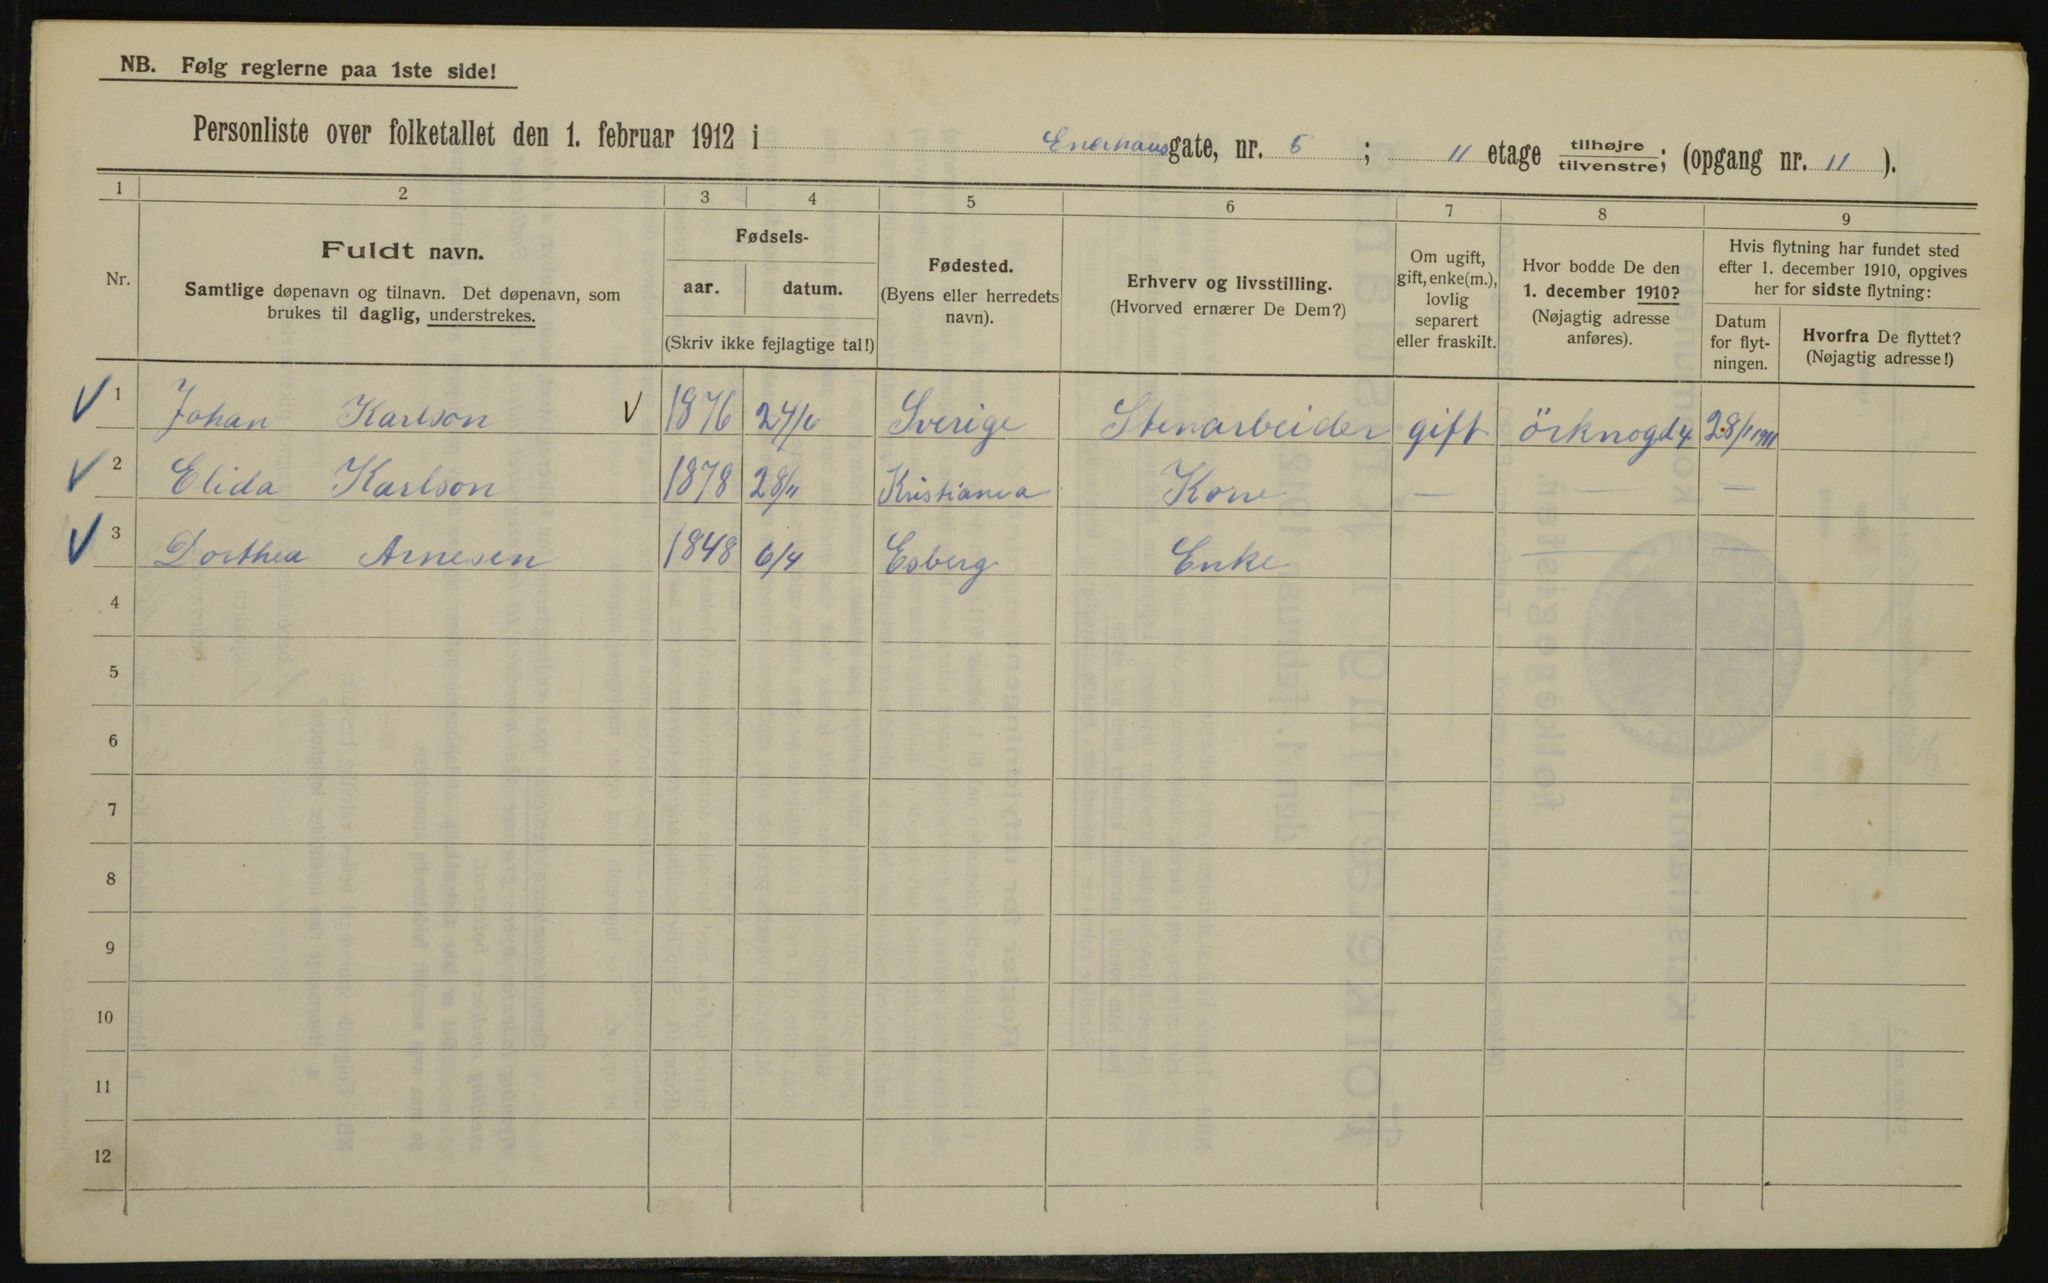 NB. Følg reglerne paa 1ste side!
Personliste over folketallet den 1. februar 1912 i Enerhaus gate, nr. 5 ; 11 etage tilhøjre/tilvenstre; (opgang nr. 11 ).
1 2 3 4 5 6 7 8 9
Nr.
Fuldt navn.
Samtlige døpenavn og tilnavn. Det døpenavn, som
brukes til daglig, understrekes.
Fødsels-
aar. datum.
(Skriv ikke fejlagtige tal!)
Fødested.
(Byens eller herredets
navn).
Erhverv og livsstilling.
(Hvorved ernærer De Dem?)
Om ugift,
gift, enke(m.),
lovlig
separert
eller fraskilt.
Hvor bodde De den
1. december 1910?
(Nøjagtig adresse
anføres).
Hvis flytning har fundet sted
efter 1. december 1910, opgives
her for sidste flytning:
Datum
for flyt-
ningen.
Hvorfra De flyttet?
(Nøjagtig adresse!)
1 Johan Karlson 1876 24/6 Sverige Stenarbeider gift örknogd 4 28/1 1911
2 Elida Karlson 1878 28/11 Kristiania Kone — — —
3 Dorthea Arnesen 1848 6/4 Esberg Enke — —
4
5
6
7
8
9
10
11
12